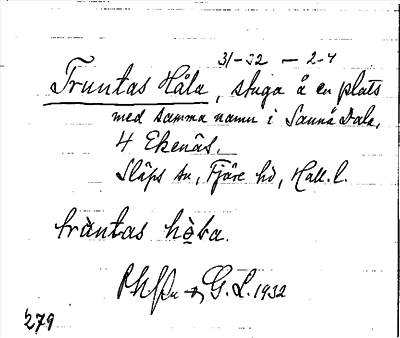 31-32 – 2-4
Truntas Håla, stuga å en plats
med samma namn i Sannå Dala,
4 Ekenäs.
Släps sn, Fjäre hd, Hall. l.
tràntas họ̀ba.
G. L. 1932
279